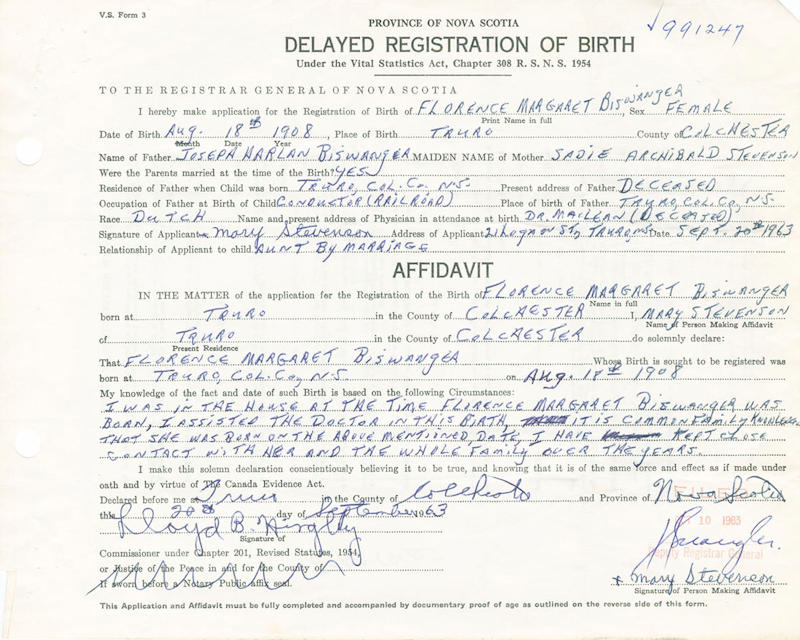 V.S. Form 3
PROVINCE OF NOVA SCOTIA
991247
DELAYED REGISTRATION OF BIRTH
Under the Vital Statistics Act, Chapter 308 R. S. N. S. 1954
TO THE REGISTRAR GENERAL OF NOVA SCOTIA
I hereby make application for the Registration of Birth of FLORENCE MARGARET BISWANGER, Sex FEMALE
Print Name in full
Date of Birth Aug. 18th 1908, Place of Birth TRURO County of COLCHESTER
Month Date Year
Name of Father JOSEPH HARLAN BISWANGER MAIDEN NAME of Mother SADIE ARCHIBALD STEVENSON
Were the Parents married at the time of the Birth? YES
Residence of Father when Child was born TRURO, COL. CO. N.S. Present address of Father DECEASED
Occupation of Father at Birth of Child CONDUCTOR (RAILROAD) Place of birth of Father TRURO, COL. CO., N.S.
Race DUTCH Name and present address of Physician in attendance at birth DR. MACLEAN (DECEASED)
Signature of Applicant Mary Stevenson Address of Applicant 21 Logan St, TRURO, NS Date SEPT. 20th 1963
Relationship of Applicant to child AUNT BY MARRIAGE
AFFIDAVIT
IN THE MATTER of the application for the Registration of the Birth of FLORENCE MARGARET BISWANGER
Name in full
born at TRURO in the County of COLCHESTER I, MARY STEVENSON
Name of Person Making Affidavit
of TRURO in the County of COLCHESTER do solemnly declare:
Present Residence
That FLORENCE MARGARET BISWANGER Whose Birth is sought to be registered was
born at TRURO, COL. CO., N.S. on Aug. 18th 1908
My knowledge of the fact and date of such Birth is based on the following Circumstances:
I WAS IN THE HOUSE AT THE TIME FLORENCE MARGARET BISWANGER WAS
BORN, I ASSISTED THE DOCTOR IN THIS BIRTH, IT IS COMMON FAMILY KNOWLEDGE
THAT SHE WAS BORN ON THE ABOVE MENTIONED DATE, I HAVE KEPT CLOSE
CONTACT WITH HER AND THE WHOLE FAMILY OVER THE YEARS.
I make this solemn declaration conscientiously believing it to be true, and knowing that it is of the same force and effect as if made under
oath and by virtue of The Canada Evidence Act.
Declared before me at Truro in the County of Colchester and Province of Nova Scotia
this 20th day of September 1963
10 1963
Signature of
Lloyd B.
Commissioner under Chapter 201, Revised Statutes, 1954,
Deputy Registrar General
or Justice of the Peace in and for the County of
If sworn before a Notary Public affix seal.
x Mary Stevenson
Signature of Person Making Affidavit
This Application and Affidavit must be fully completed and accompanied by documentary proof of age as outlined on the reverse side of this form.